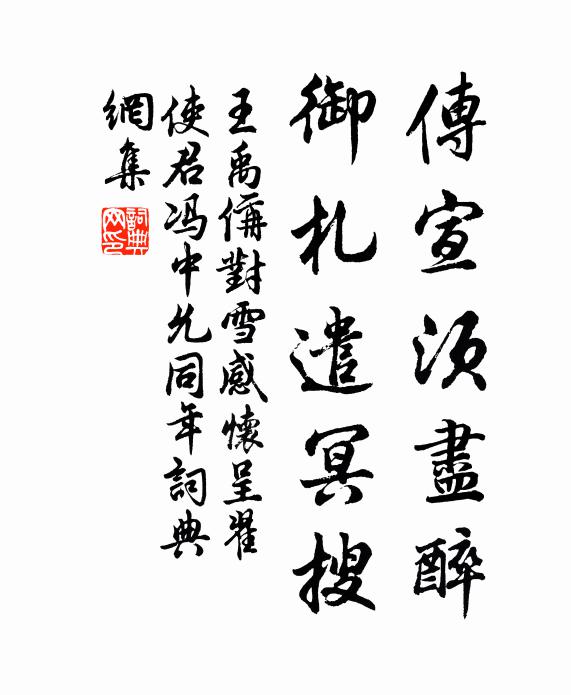 傳宣須盡醉
御札遣冥搜
王禹偁對雪感懷呈翟
使君冯中允同年詞典
網集
詞典
网印